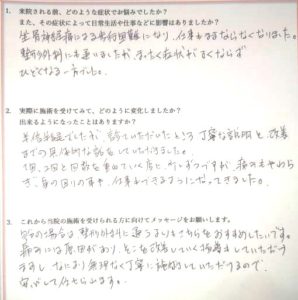 1. 来院される前、どのような症状でお悩みでしたか？
また、その症状によって日常生活や仕事などに影響はありましたか？
坐骨神経痛による歩行困難になり、仕事もままならなくなりました。
整形外科にも通いましたが、まったく症状がよくならず
ひどくなる一方でした。
2. 実際に施術を受けてみて、どのように変化しましたか？
出来るようになったことはありますか？
半信半疑でしたが、診ていただいたところ丁寧な説明と、改善
までの具体的な話をしていただきました。
1回、2回と回数を重ねていく度に、少しずつですが、痛みもやわら
ぎ、身の回りの事や、仕事もできるようになってきました。
3. これから当院の施術を受けられる方に向けてメッセージをお願いします。
私の場合は整形外科に通うよりもこちらをおすすめしたいです。
痛みには原因があり、そこを改善していく施術をしていただけ
ますし、なにより無理なく丁寧に施術していただけるので、
安心して任せられます。